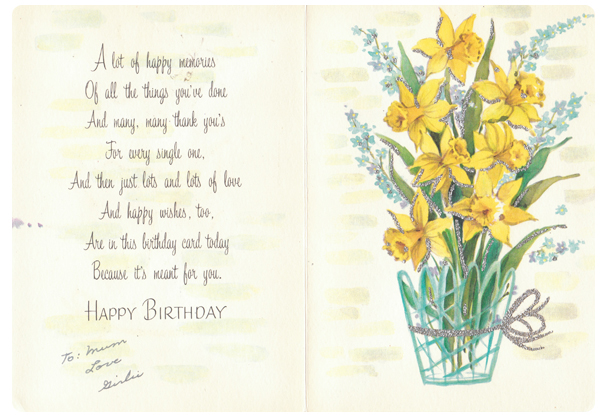 A lot of happy memories
Of all the things you've done
And many, many thank you's
For every single one,
And then just lots and lots of love
And happy wishes, too,
Are in this birthday card today
Because it's meant for you.
HAPPY BIRTHDAY
To: Mum
Love